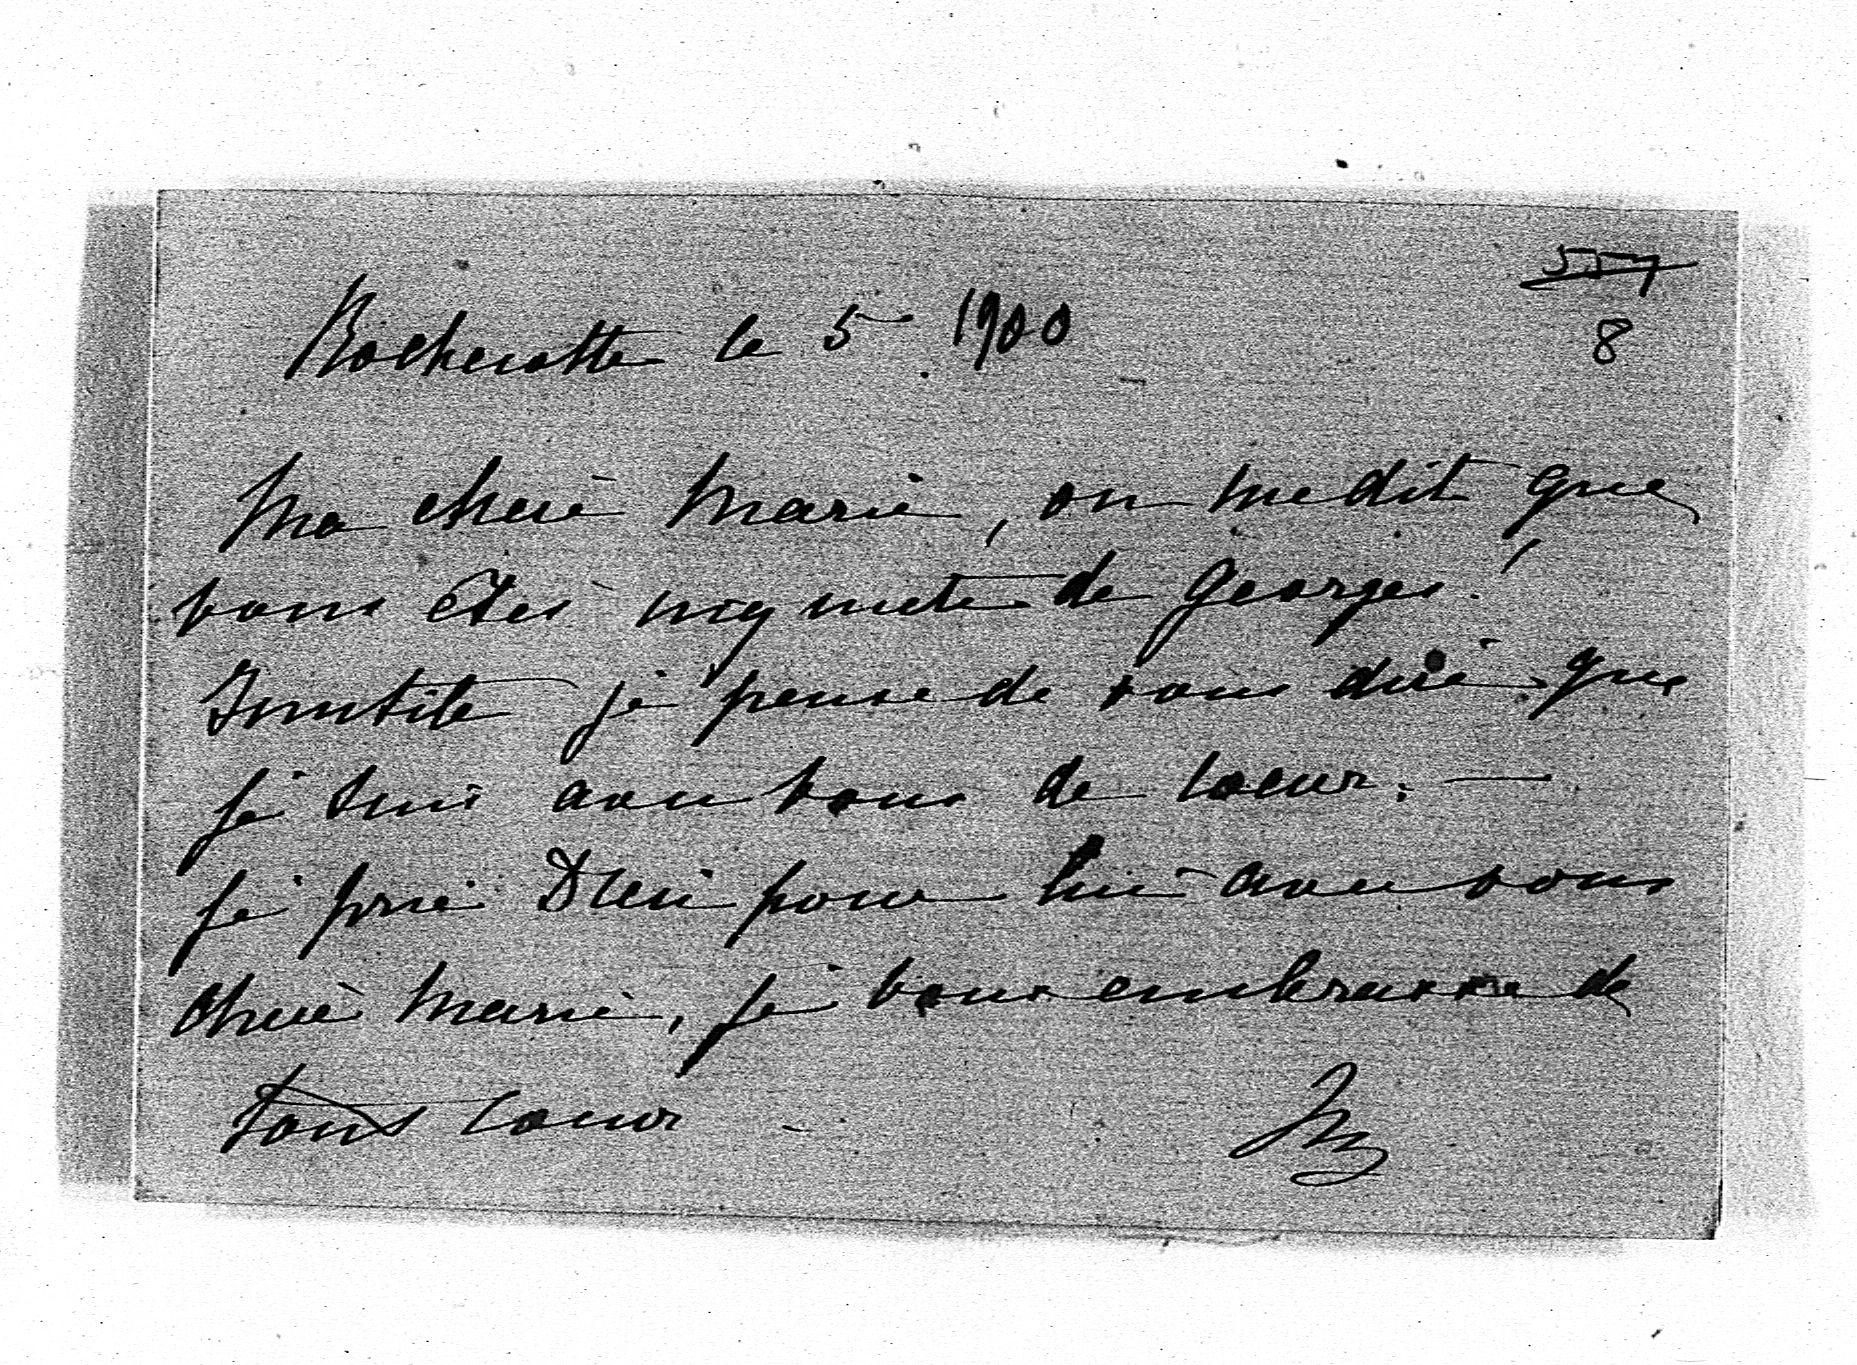 557
8
Rochecotte le 5 1900
Ma chère Marie, on me dit que
vous êtes inquiète de Georges!
Inutile je pense de vous dire que
je suis avec vous de coeur. —
je prie Dieu pour lui avec vous
chère Marie, je vous embrasse de
tout coeur